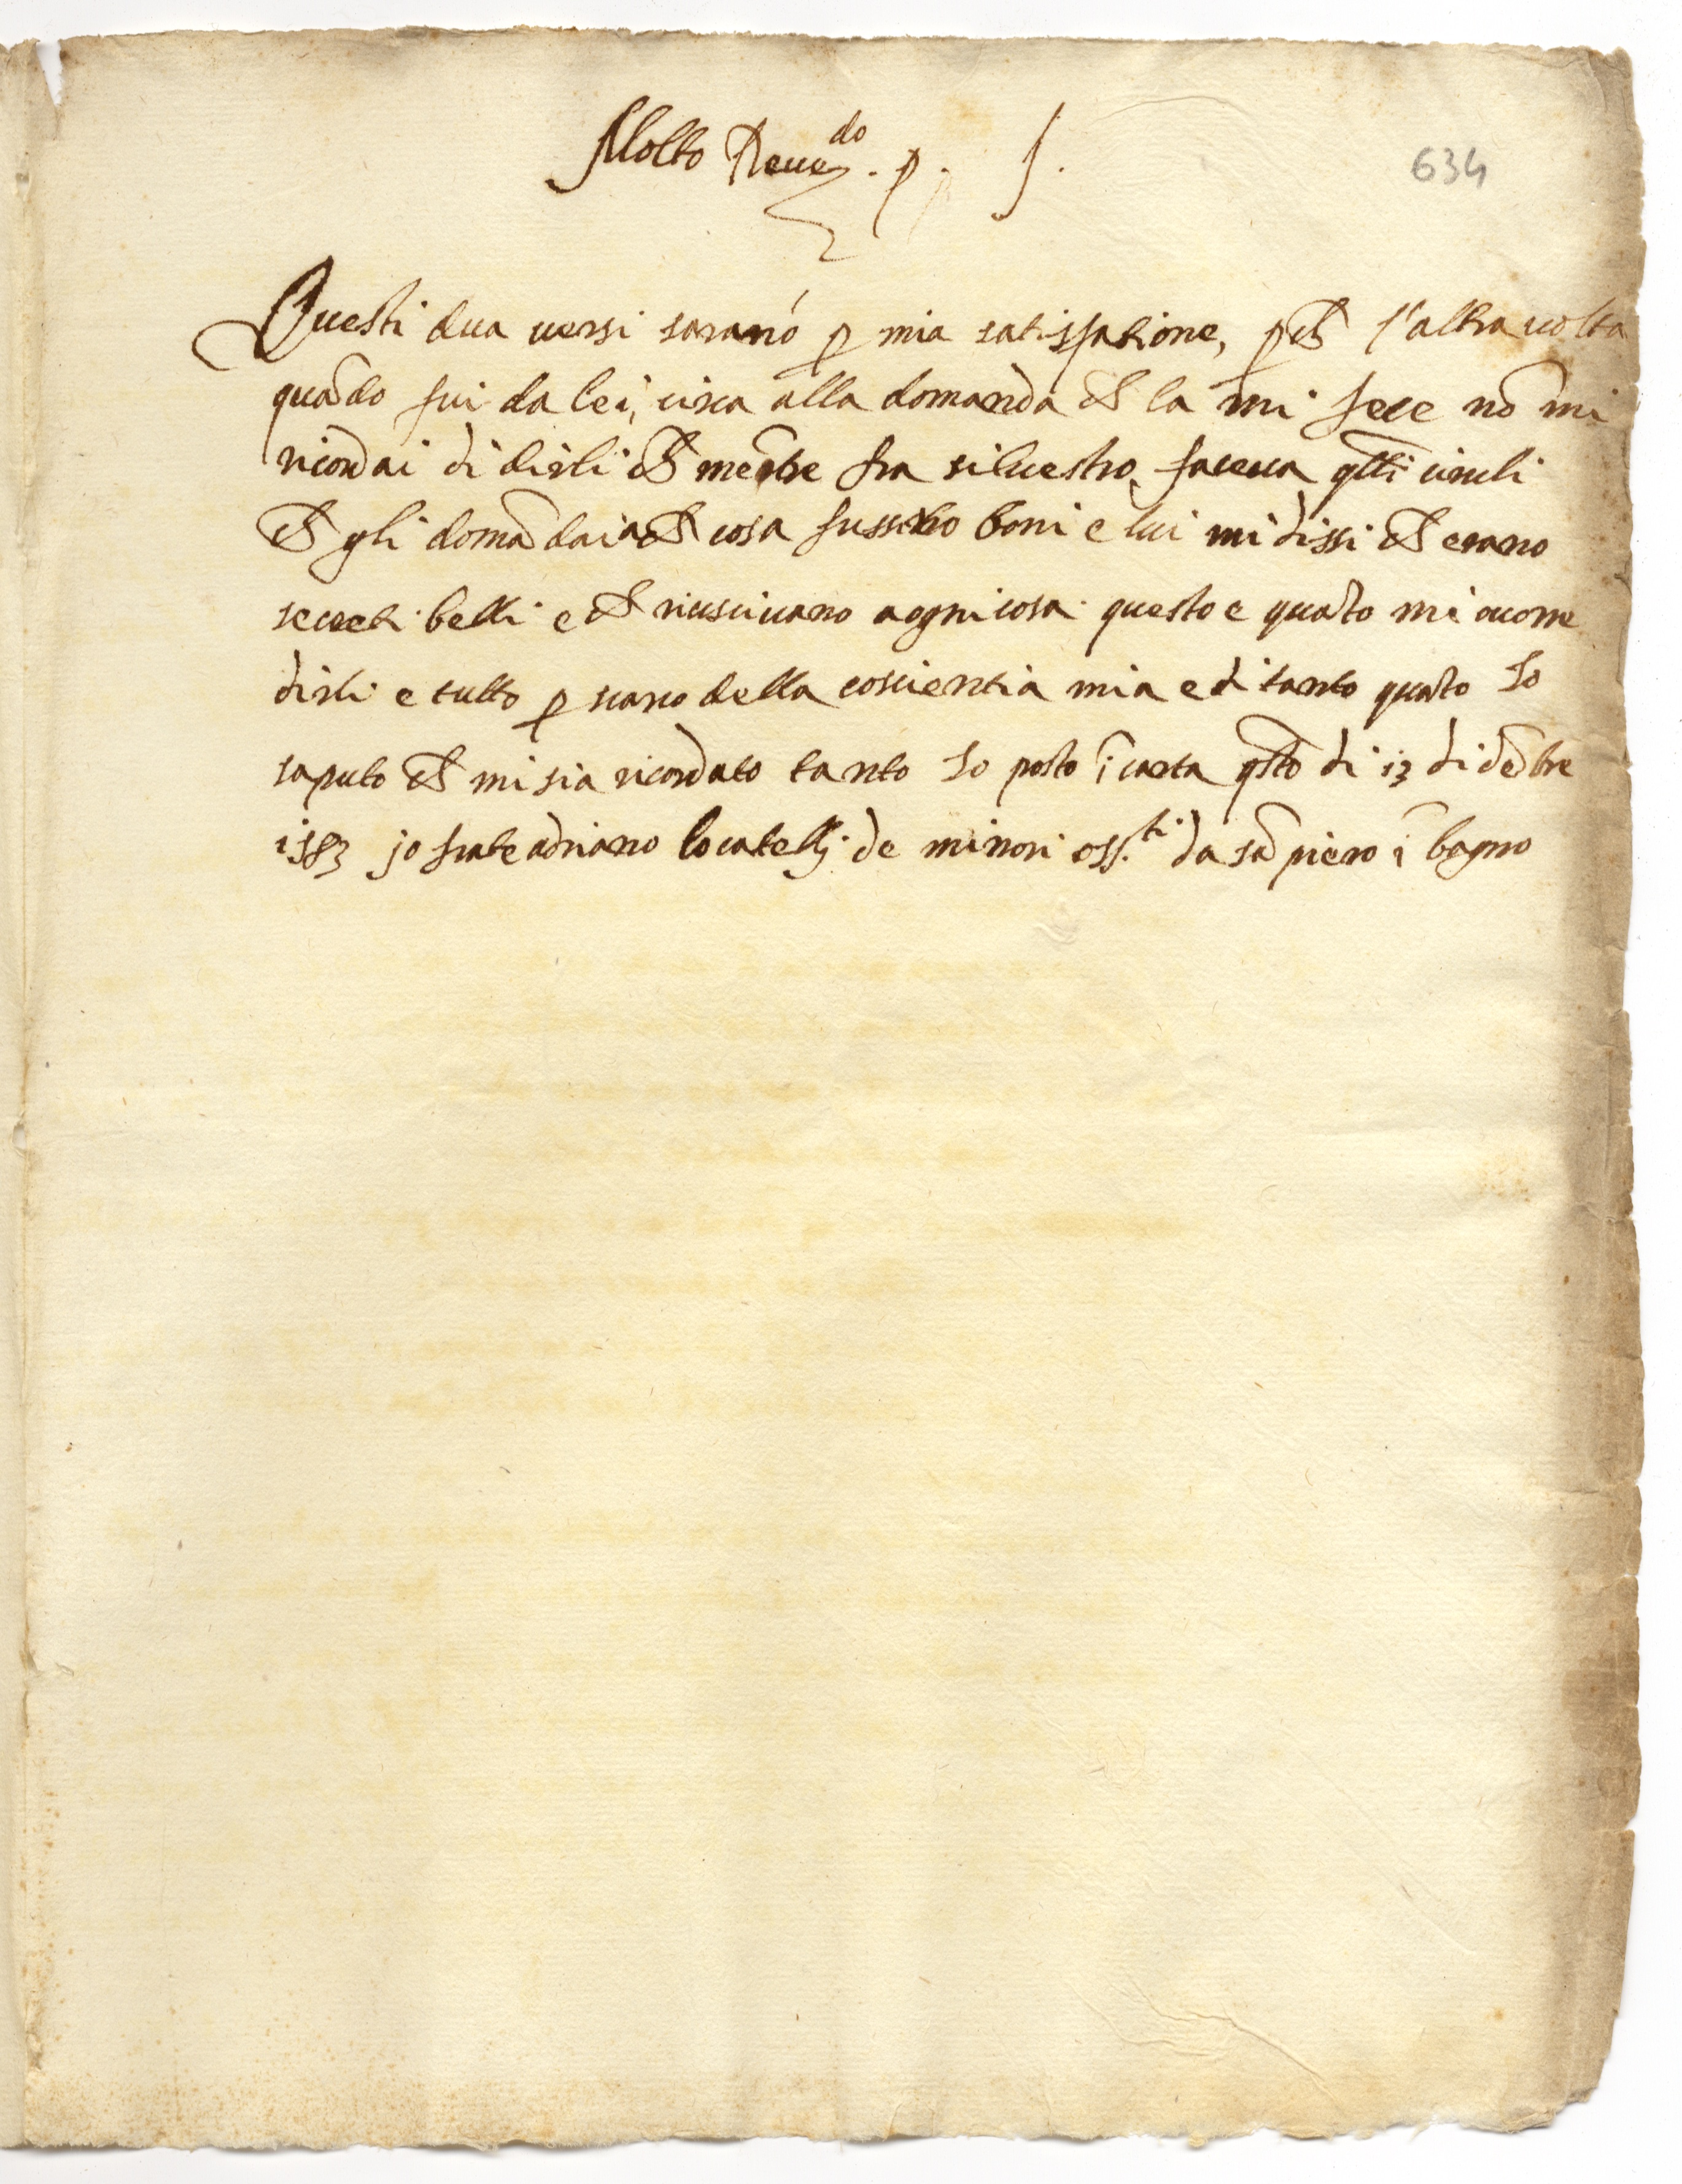 Molto Reue^do. p. S.
634
Questi dua uersi saranó p mia satisfatione, pch l'altra uolta
quādo fui da lei, circa alla domanda ch la mi fece nō mi
ricordai di dirli ch mentre fra siluestro faceua qlli circuli
ch gli domādai a ch cosa fussino boni e lui mi dissi ch erano
secreti belli e ch riusciuano a ogni cosa questo e quāto mi ocorre
dirli e tutto p scarico della coscientia mia e di tanto quāto ho
saputo ch mi sia ricordato tanto ho posto ī carta qsto di 13 di dēbre
1583 jo frate adriano locatellj de minori oss.^ti da sā piero ī bagno